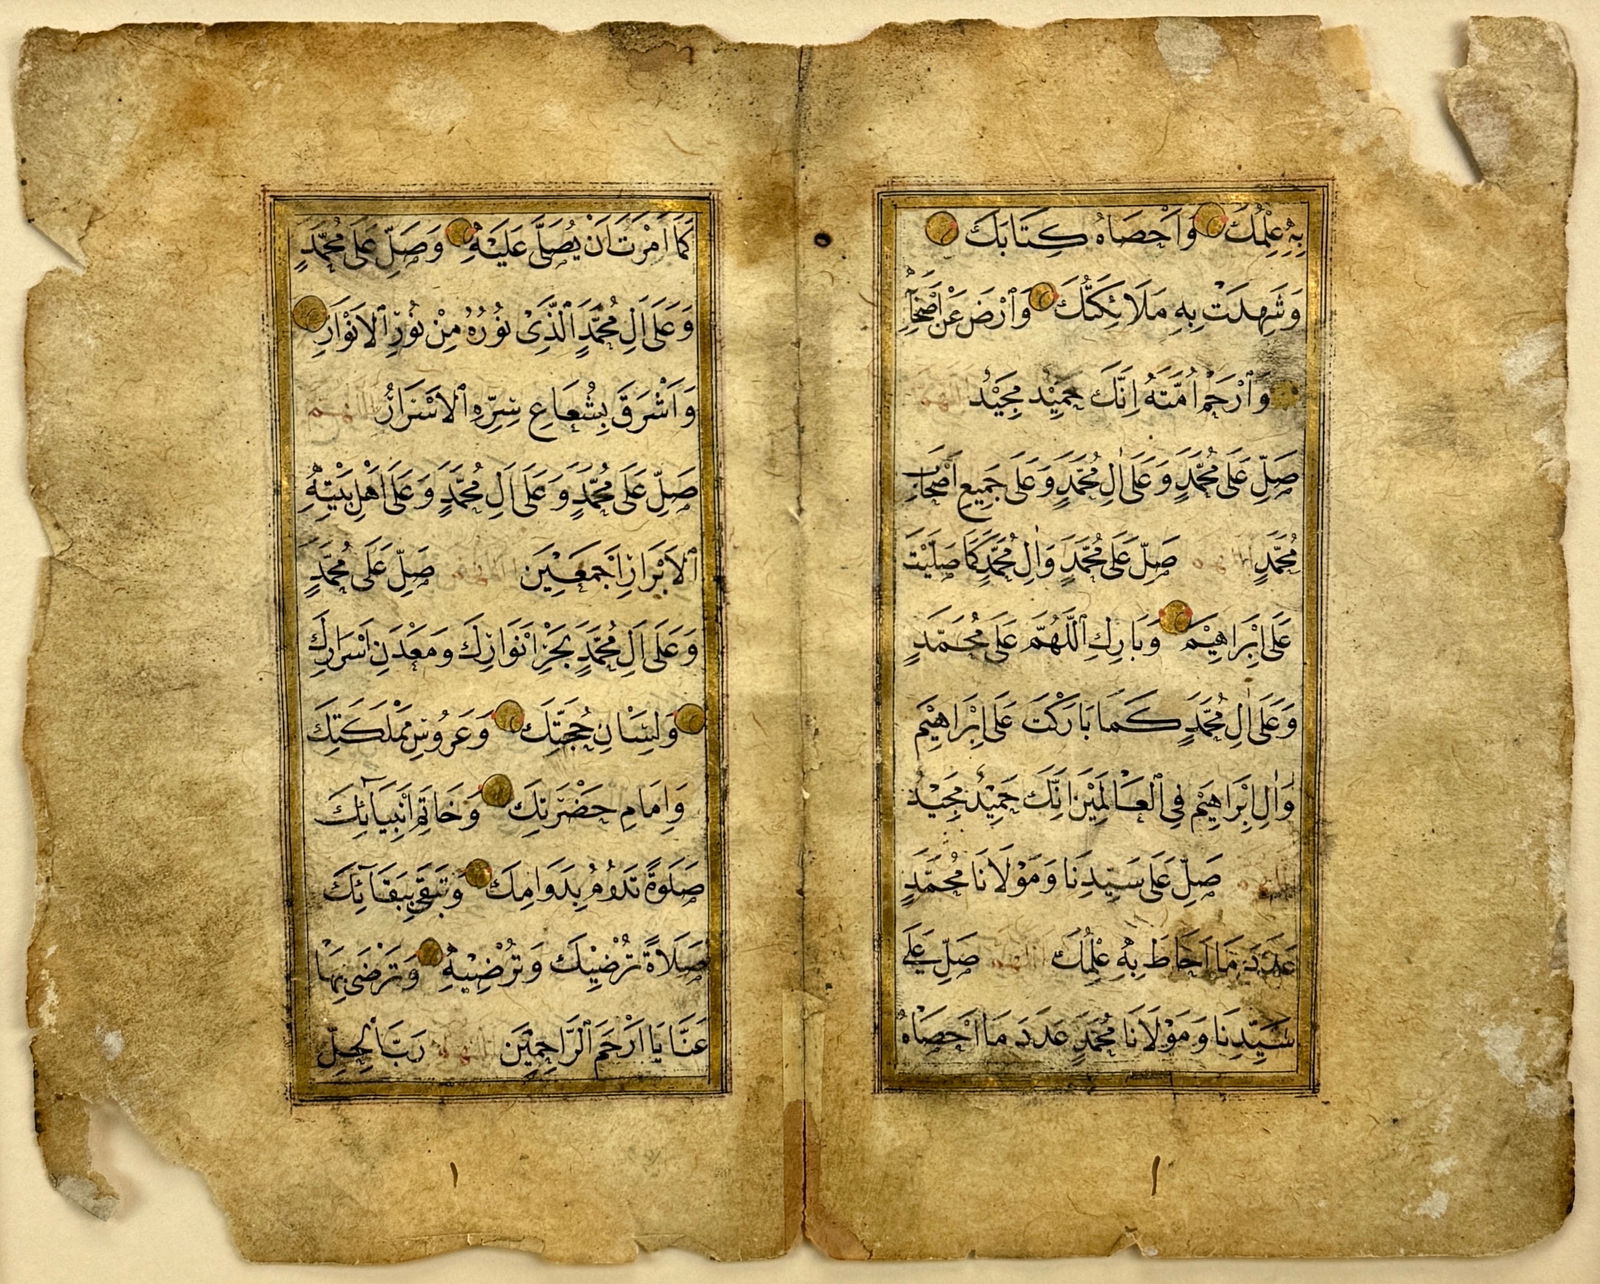 بِهِ عِلْمُكَ وَاَحْصَاهُ كِتَابُكَ
وَشَهِدَتْ بِهِ مَلَائِكَتُكَ وَارْضَ عَنْ اَصْحَابِهِ
وَارْحَمْ اُمَّتَهُ اِنَّكَ حَمِيْدٌ مَجِيْدٌ اللهم
صَلِّ عَلَى مُحَمَّدٍ وَعَلَى اٰلِ مُحَمَّدٍ وَعَلَى جَمِيْعِ اَصْحَابِ
مُحَمَّدٍ اللهم صَلِّ عَلَى مُحَمَّدٍ وَاٰلِ مُحَمَّدٍ كَمَا صَلَّيْتَ
عَلَى اِبْرَاهِيْمَ وَبَارِكِ اللّٰهُمَّ عَلَى مُحَمَّدٍ
وَعَلَى اٰلِ مُحَمَّدٍ كَمَا بَارَكْتَ عَلَى اِبْرَاهِيْمَ
وَاٰلِ اِبْرَاهِيْمَ فِى الْعَالَمِيْنَ اِنَّكَ حَمِيْدٌ مَجِيْدٌ
اللهم صَلِّ عَلَى سَيِّدِنَا وَمَوْلَانَا مُحَمَّدٍ
عَدَدَ مَا اَحَاطَ بِهِ عِلْمُكَ اللهم صَلِّ عَلَى
سَيِّدِنَا وَمَوْلَانَا مُحَمَّدٍ عَدَدَ مَا اَحْصَاهُ
١
كَمَا اَمَرْتَ اَنْ يُصَلَّى عَلَيْهِ وَصَلِّ عَلَى مُحَمَّدٍ
وَعَلَى اٰلِ مُحَمَّدٍ الَّذِىْ نُوْرُهُ مِنْ نُوْرِ الْاَنْوَارِ
وَاَشْرَقَ بِشُعَاعِ سِرِّهِ الْاَسْرَارُ اللهم
صَلِّ عَلَى مُحَمَّدٍ وَعَلَى اٰلِ مُحَمَّدٍ وَعَلَى اَهْلِ بَيْتِهِ
الْاَبْرَارِ اَجْمَعِيْنَ اللهم صَلِّ عَلَى مُحَمَّدٍ
وَعَلَى اٰلِ مُحَمَّدٍ بَحْرِ اَنْوَارِكَ وَمَعْدَنِ اَسْرَارِكَ
وَلِسَانِ حُجَّتِكَ وَعَرُوْسِ مَمْلَكَتِكَ
وَاِمَامِ حَضْرَتِكَ وَخَاتَمِ اَنْبِيَآئِكَ
صَلٰوةً تَدُوْمُ بِدَوَامِكَ وَتَبْقَى بِبَقَآئِكَ
صَلَاةً تُرْضِيْكَ وَتُرْضِيْهِ وَتَرْضَى بِهَا
عَنَّا يَا اَرْحَمَ الرَّاحِمِيْنَ اللهم رَبَّ الْحِلِّ
١